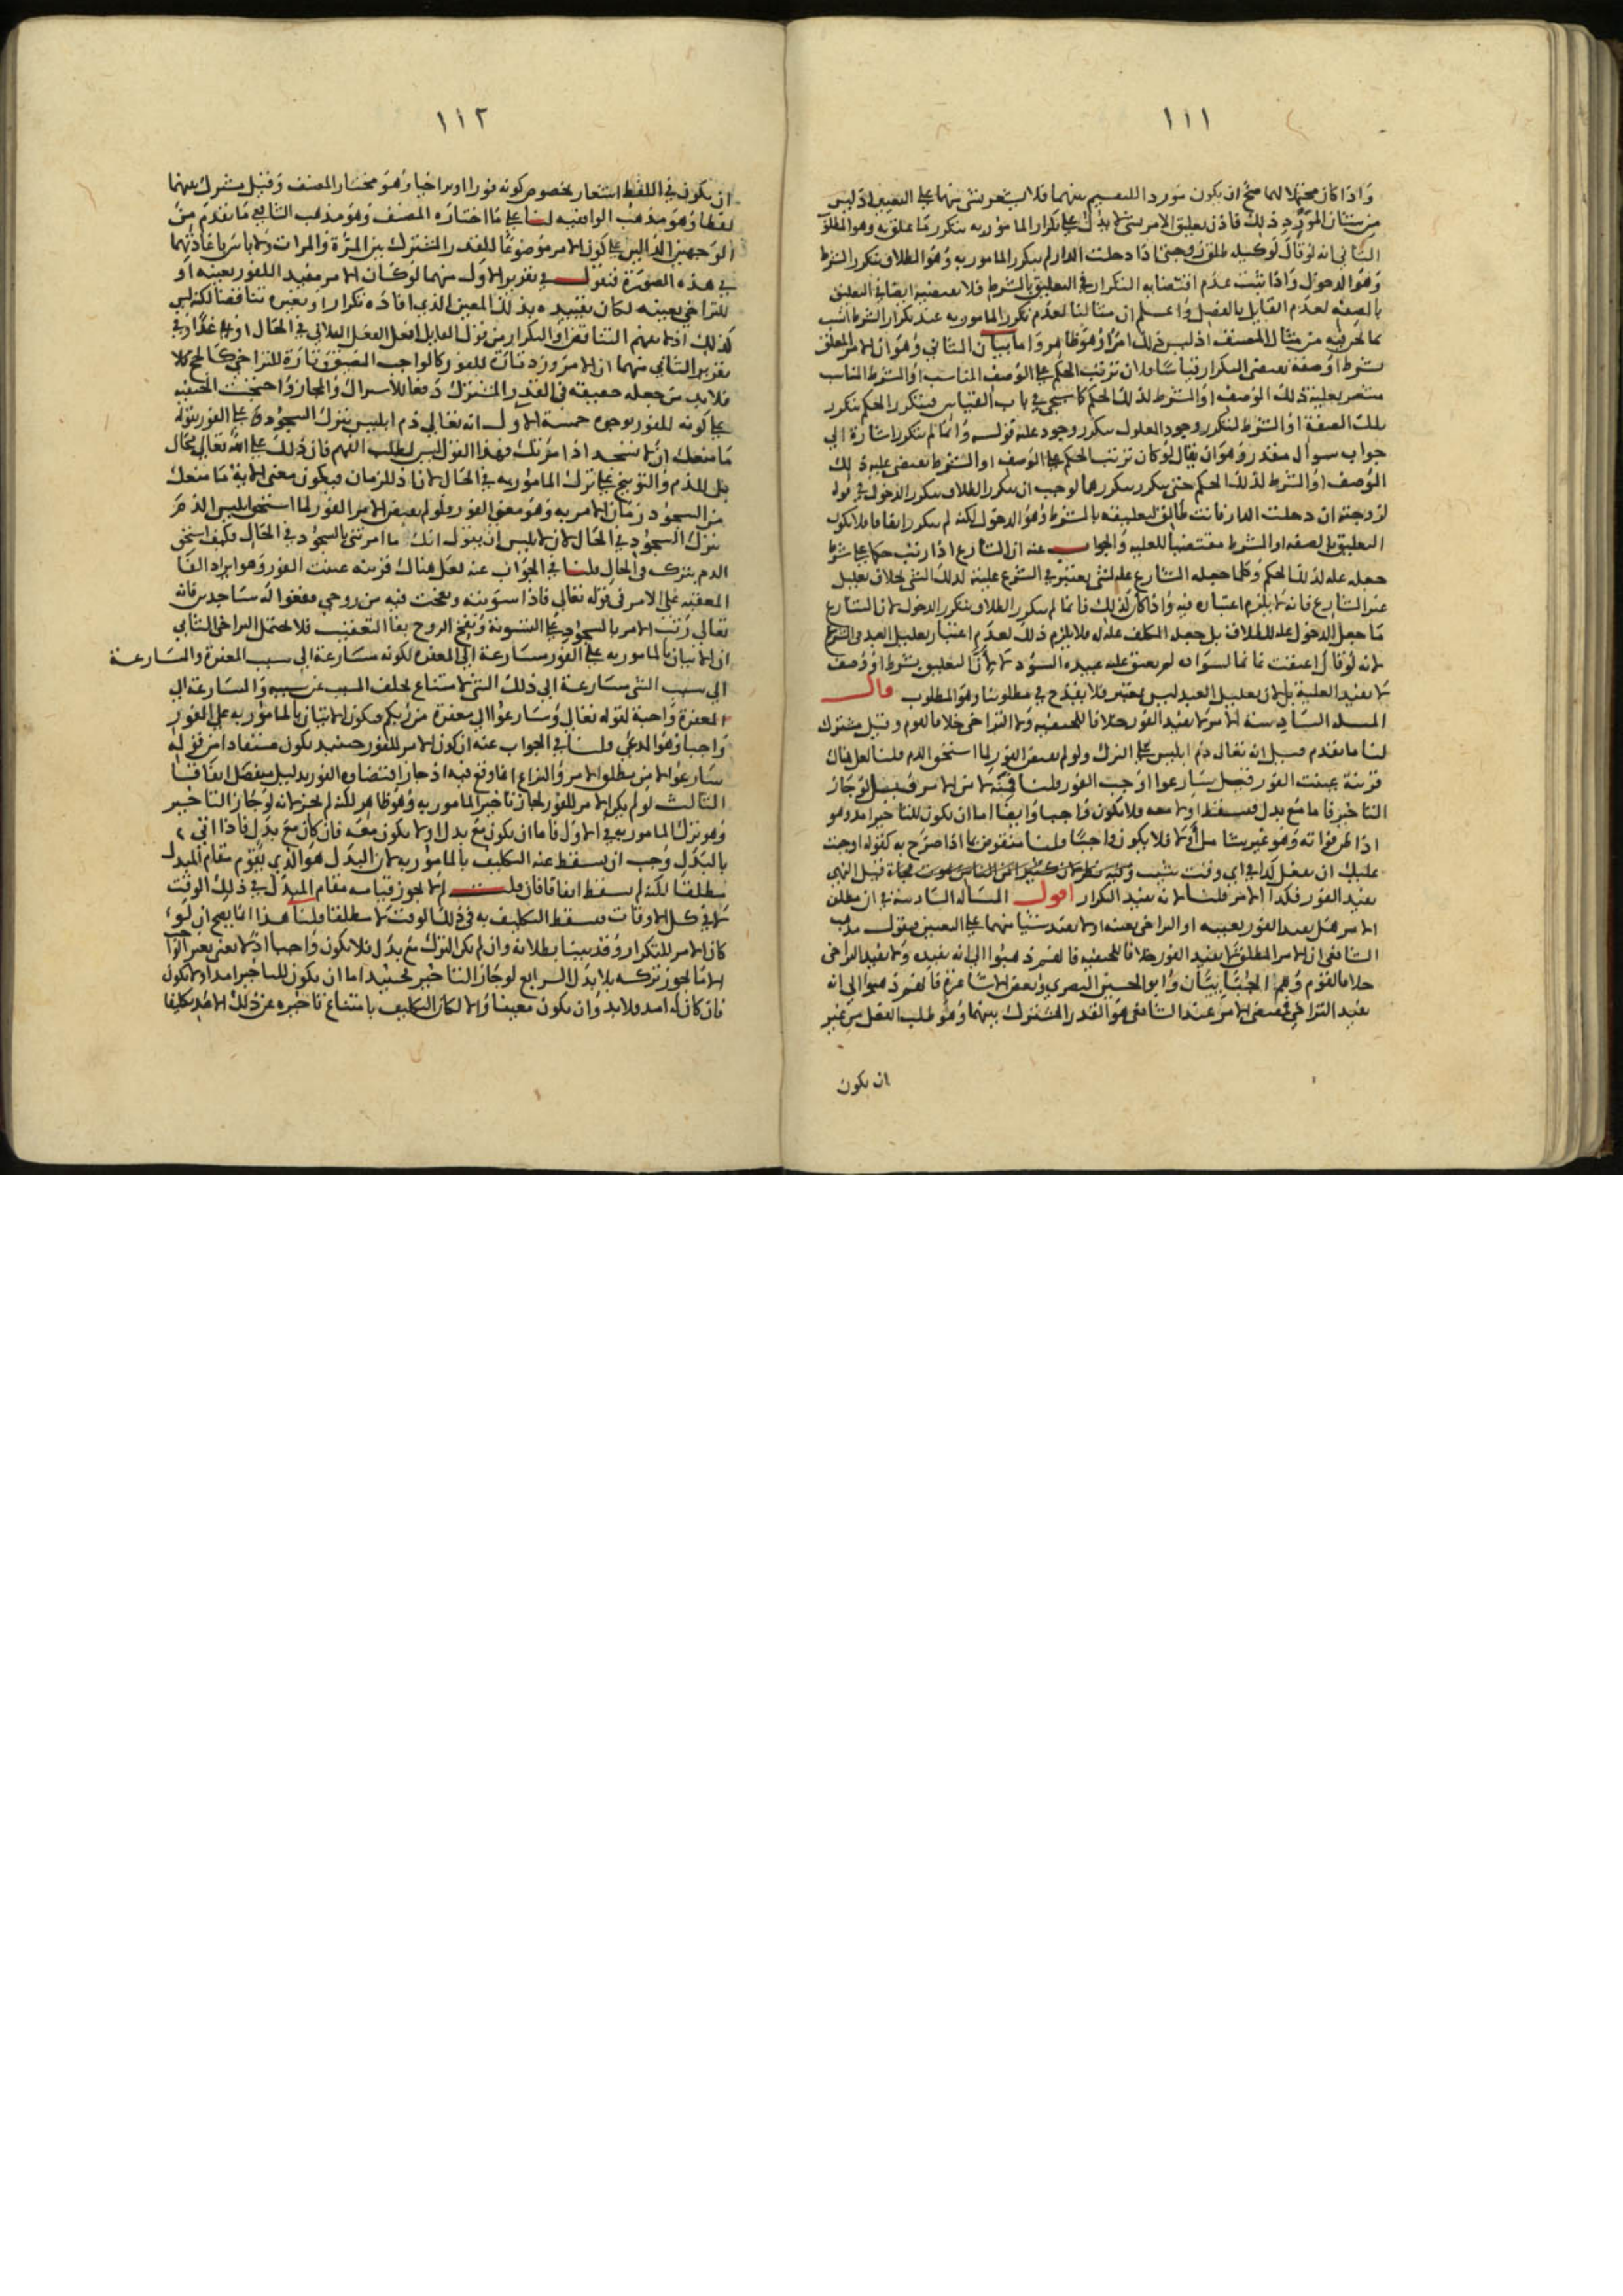 ١١١
واذا كان محتملا لهما صح ان يكون موردا للتقسيم بينهما فلا يشعر بشئ منهما على التعيين اذ ليس
الثاني انه لو قال لوكيله طلق زوجتي اذا دخلت الدار لم يتكرر المامور به وهو الطلاق بتكرر الشرط
وهو الدخول واذا ثبت عدم اقتضايه التكرار في التعليق بالشرط فلا يقتضيه ايضا في التعليق
بالصفة لعدم القايل بالفصل واعلم ان مثالنا لعدم تكرر المامور به عند تكرار الشرط انسب
بشرط او صفة يقتضي التكرار قياسا فلان ترتيب الحكم على الوصف المناسب او الشرط المناسب
تلك الصفة او الشرط لتكرر وجود المعلول بتكرر وجود علته قوله وانما لم يتكرر اشارة الى
جواب سوال مقدر وهو ان يقال لو كان ترتيب الحكم على الوصف او الشرط يقتضي علية ذلك
الوصف او الشرط لذلك الحكم حتى يتكرر بتكررهما لوجب ان يتكرر الطلاق بتكرر الدخول في قوله
لزوجته ان دخلت الدار فانت طالق لتعليقه بالشرط وهو الدخول لكنه لم يتكرر اتفاقا فلا يكون
التعليق بالصفة او الشرط مقتضيا للعلية والجواب عنه ان الشارع اذا رتب حكما على شرط
جعله علة لذلك الحكم وكلما جعله الشارع علة لشئ يعتبر في الشرع عليته لذلك الشئ بخلاف تعليل
غير الشارع فانه لا يلزم اعتباره فيه واذا كان كذلك فانما لم يتكرر الطلاق بتكرر الدخول لان الشارع
ما جعل الدخول علة للطلاق بل جعله المكلف علة له فلا يلزم ذلك لعدم اعتبار تعليل العبد في الشرع
لا يفيد العلية بل لان تعليل العبد ليس بمعتبر فلا يقدح في مطلوبنا وهو المطلوب قال
المسلة السادسة الامر لا يفيد الفور خلافا للحنفية ولا التراخي خلافا لقوم وقيل مشترك
لنا ما تقدم قيل انه تعالى ذم ابليس على الترك ولو لم يقتض الفور لما استحق الذم قلنا لعل هناك
قرينة عينت الفور قيل سارعوا اوجب الفور قلنا فمنه لا من الامر قيل لو جاز
التاخير فاما مع بدل فيسقط او لا معه فلا يكون واجبا وايضا اما ان يكون للتاخير امد وهو
اذا ظن فواته وهو غير شامل او لا فلا يكون واجبا قلنا منقوض بما اذا صرح به كقوله اوجبت
عليك ان تفعل كذا في اي وقت شئت
يفيد الفور فكذا الامر قلنا لانه يفيد التكرار اقول المسالة السادسة في ان مطلق
الامر هل يفيد الفور بعينه او التراخي بعينه او لا يفيد شيئا منهما على التعيين فنقول مذهب
الشافعي ان الامر المطلق لا يفيد الفور خلافا للحنفية فانهم ذهبوا الى انه يفيده ولا يفيد التراخي
خلافا لقوم وهم الجبائيان وابو الحسين البصري وبعض الاشاعرة فانهم ذهبوا الى انه
يفيد التراخي فمقتضى الامر عند الشافعي هو القدر المشترك بينهما وهو طلب الفعل من غير
ان يكون
١١٢
ان يكون في اللفظ اشعار بخصوص كونه فورا او تراخيا وهو مختار المصنف وقيل مشترك بينهما
لفظا وهو مذهب الواقفية لنا على ما اختاره المصنف وهو مذهب الشافعي ما تقدم من
الوجهين الدالين على كون الامر موضوعا للقدر المشترك بين المرة والمرات ولا باس باعادتهما
في هذه الصورة فنقول في تقرير الاول منهما لو كان الامر مفيدا للفور بعينه او
للتراخي بعينه لكان تقييده بذلك المعين الذي افاده تكرارا وبغيره تناقضا لكنه ليس
كذلك اذ لا يفهم التناقض او التكرار من قول القايل افعل الفعل الفلاني في الحال او غدا
تقرير الثاني منهما ان الامر ورد تارة للفور كالواجب المضيق وتارة للتراخي كالحج فلا
فلابد من جعله حقيقة في القدر المشترك دفعا للاشتراك والمجاز واحتجت الحنفية
على كونه للفور بوجوه خمسة الاول انه تعالى ذم ابليس بترك السجود على الفور بقوله
ما منعك ان لا تسجد اذ امرتك فهذا القول ليس لطلب الفهم فان ذلك على الله تعالى محال
بل للذم والتوبيخ على ترك المامور به في الحال لان اذ للزمان فيكون معنى الاية ما منعك
من السجود زمان الامر به وهو معنى الفور ولو لم يقتض الامر الفور لما استحق ابليس الذم
بترك السجود في الحال لان لابليس ان يقول انك ما امرتني بالسجود في الحال فكيف استحق
الذم بتركه في الحال قلنا في الجواب عنه لعل هناك قرينة عينت الفور وهو ايراد الفا
المعقبة على الامر في قوله تعالى فاذا سويته ونفخت فيه من روحي فقعوا له ساجدين فانه
تعالى رتب الامر بالسجود على التسوية ونفخ الروح بفا التعقيب فلا يحتمل التراخي الثاني
ان الاتيان بالمامور به على الفور مسارعة الى المغفرة لكونه مسارعة الى سبب المغفرة والمسارعة
الى سبب الشئ مسارعة الى ذلك الشئ لامتناع تخلف المسبب عن سببه والمسارعة الى
المغفرة واجبة لقوله تعالى وسارعوا الى مغفرة من ربكم فيكون الاتيان بالمامور به على الفور
واجبا وهو المدعى قلنا في الجواب عنه ان كون الامر للفور حينئذ يكون مستفادا من قوله
سارعوا لا من مطلق الامر والنزاع انما وقع فيه اذ جاز اقتضاوه الفور بدليل منفصل اتفاقا
الثالث لو لم يكن الامر للفور لجاز تاخير المامور به وهو ظاهر لكنه لم يجز لانه لو جاز التاخير
وهو ترك المامور به في الاول فاما ان يكون مع بدل او لا يكون معه فان كان مع بدل فاذا اتى
بالبدل وجب ان يسقط عنه التكليف بالمامور به لان البدل هو الذي يقوم مقام المبدل
مطلقا لكنه لم يسقط اتفاقا فان قلت لم لا يجوز قيامه مقام المبدل في ذلك الوقت
لا في كل الاوقات فيسقط التكليف به في ذلك الوقت لا مطلقا قلنا هذا انما يصح ان لو
كان الامر للتكرار وقد بينا بطلانه وان لم يكن الترك مع بدل فلا يكون واجبا اذ لا نعني بغير الواجب
الا ما يجوز تركه بلا بدل الرابع لو جاز التاخير فحينئذ اما ان يكون للتاخير امد او لا يكون
فان كان له امد فلابد وان يكون معينا والا لكان التكليف بامتناع تاخيره عن ذلك الامد تكليفا